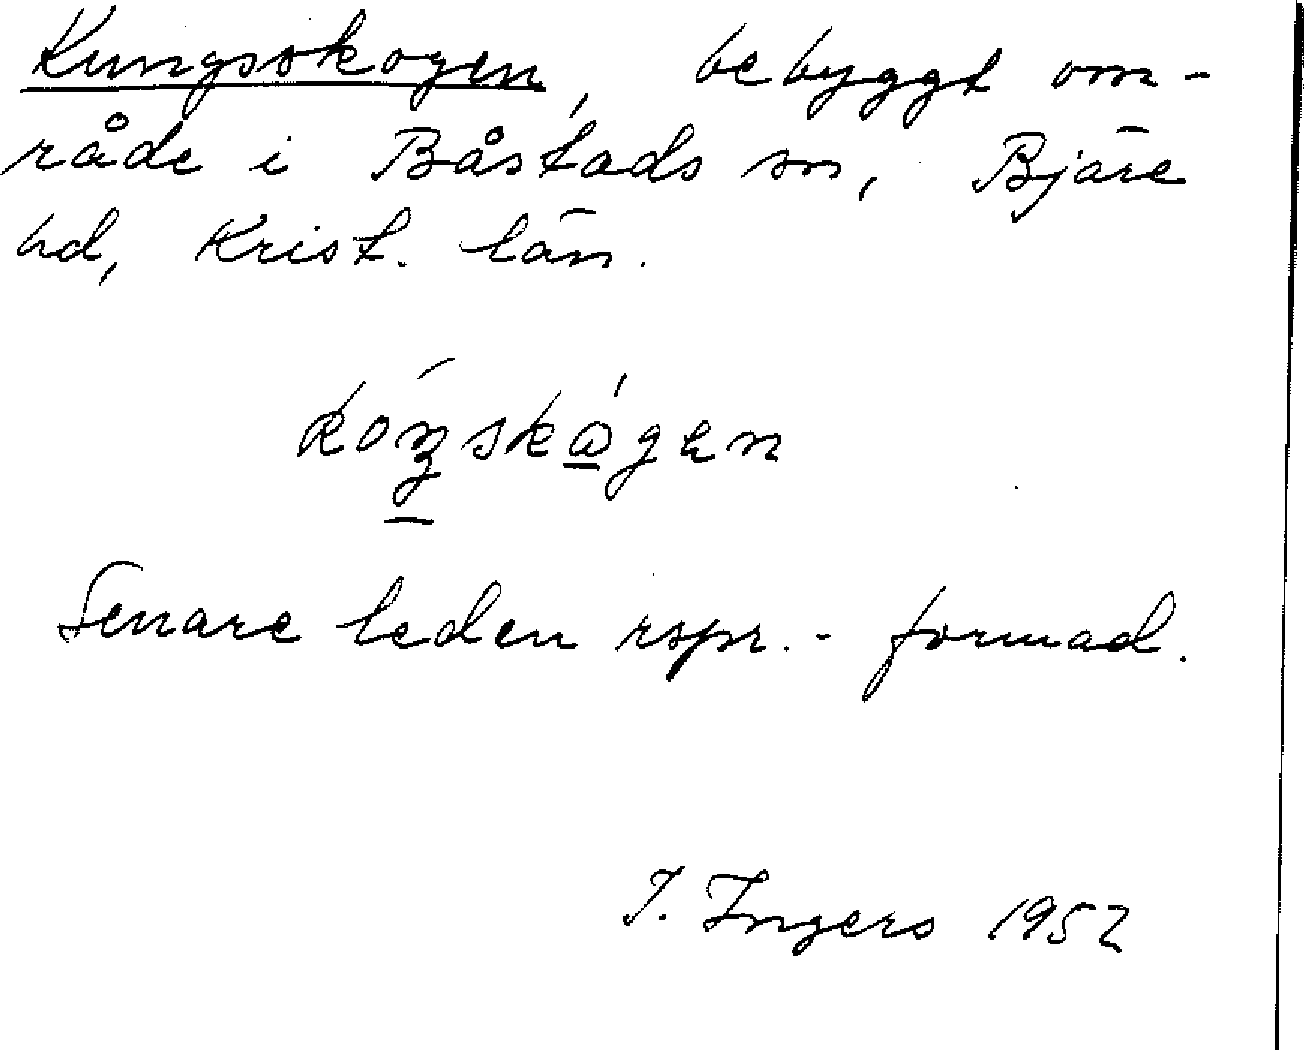 Kungsskogen, bebyggt om-
råde i Båstads sn, Bjäre
hd, Krist. län.
kóŋskågen
Senare leden rspr.-formad.
I. Ingers 1952